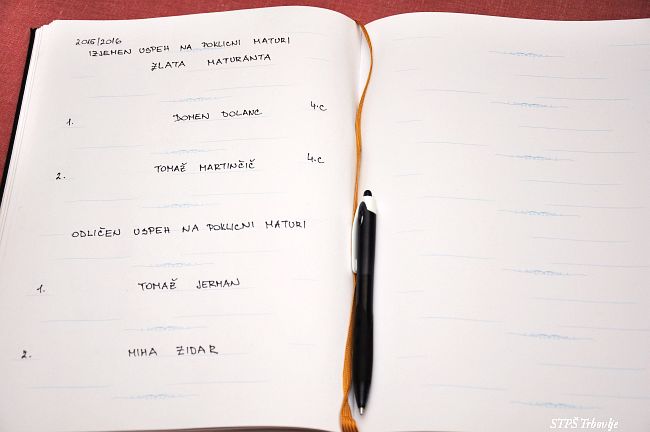 2015/2016
IZJEMEN USPEH NA POKLICNI MATURI
ZLATA MATURANTA
1. DOMEN DOLANC 4.C
2. TOMAŽ MARTINČIČ 4.C
ODLIČEN USPEH NA POKLICNI MATURI
1. TOMAŽ JERMAN
2. MIHA ZIDAR
STPŠ Trbovlje